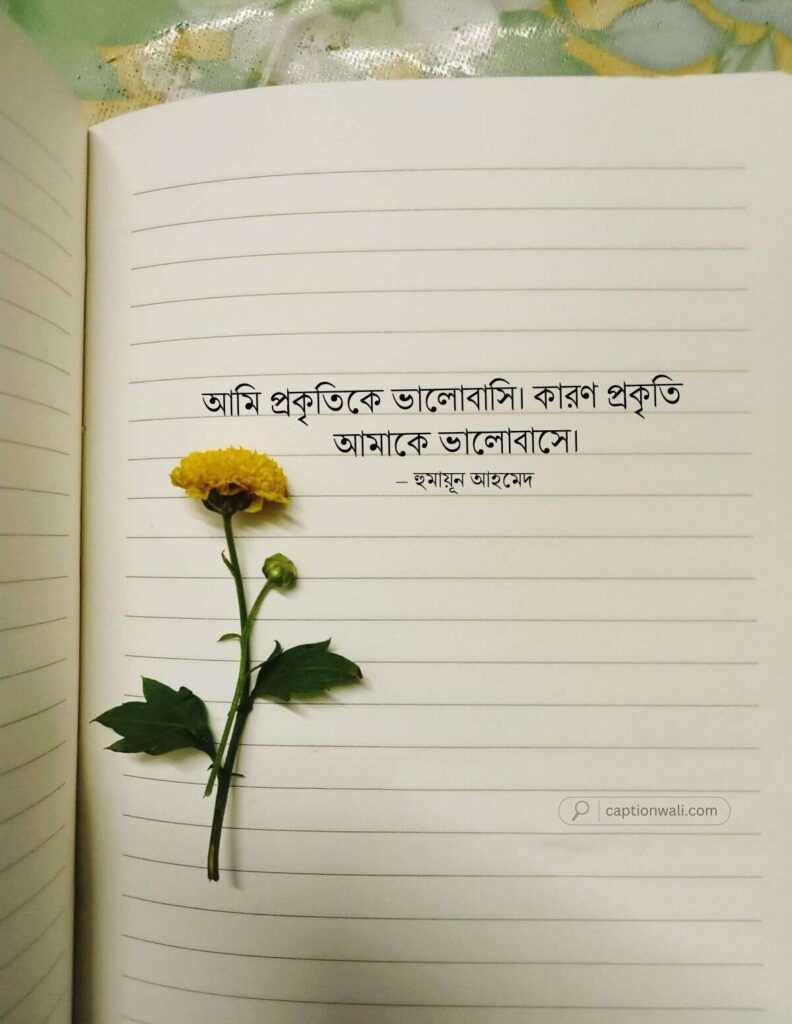 আমি প্রকৃতিকে ভালোবাসি। কারণ প্রকৃতি
আমাকে ভালোবাসে।
– হুমায়ূন আহমেদ
captionwali.com